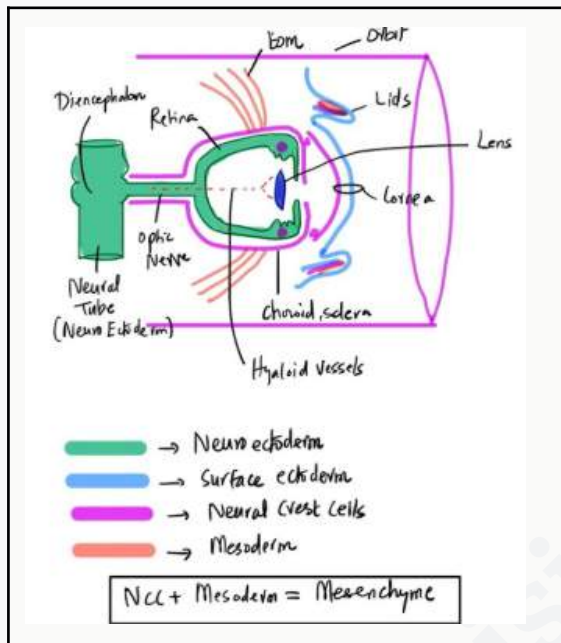 Eom
Orbit
Diencephalon
Retina
Lids
Lens
Cornea
Optic
Nerve
Neural
Tube
(Neuro Ectoderm)
Choroid, sclera
Hyaloid vessels
→ Neuro ectoderm
→ Surface ectoderm
→ Neural Crest Cells
→ Mesoderm
NCC + Mesoderm = Mesenchyme